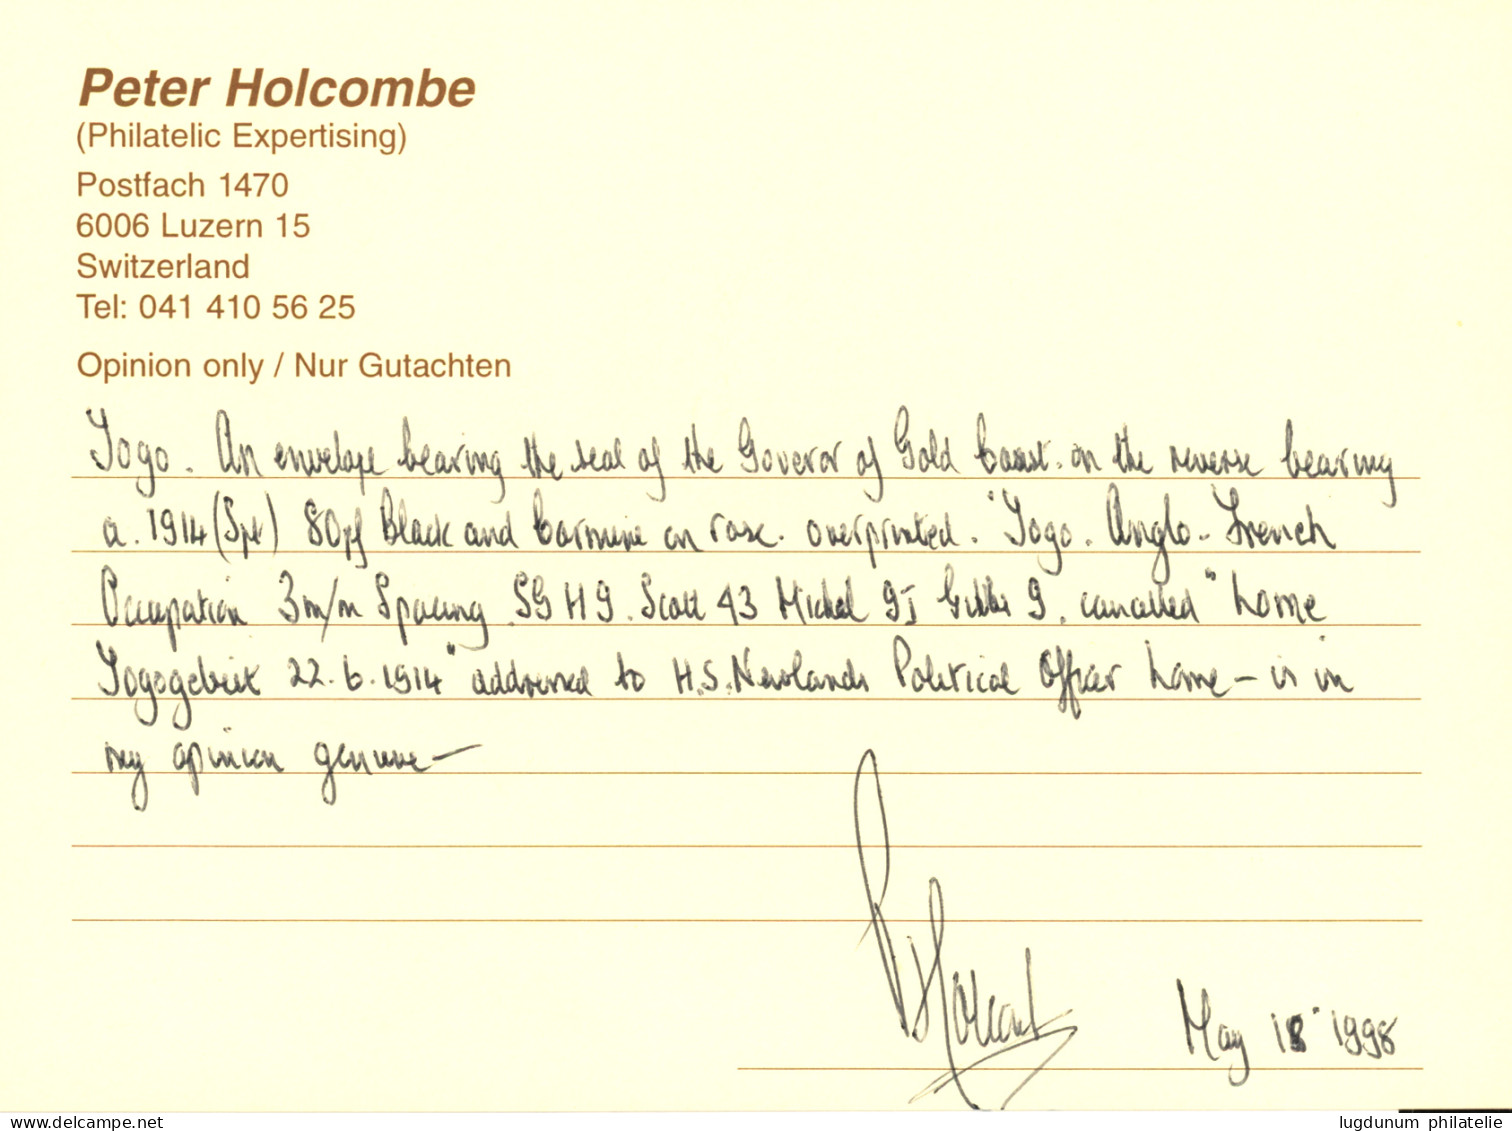 Peter Holcombe
(Philatelic Expertising)
Postfach 1470
6006 Luzern 15
Switzerland
Tel: 041 410 56 25
Opinion only / Nur Gutachten
Togo. An envelope bearing the seal of the Goveror of Gold Coast. on the reverse bearing
a. 1914 (Spt) 80pf Black and Carmine on rose. overprinted. "Togo. Anglo-French
Occupation 3m/m Spacing. SG H9. Scott 43 Michel 9I Gibbs 9. cancelled "Lome
Togogebiet 22.6.1914" addressed to H.S. Newlands Political Officer Lome – is in
my opinion genuine –
P Holcombe
May 18 1998
delcampe.net
lugdunum philatelie